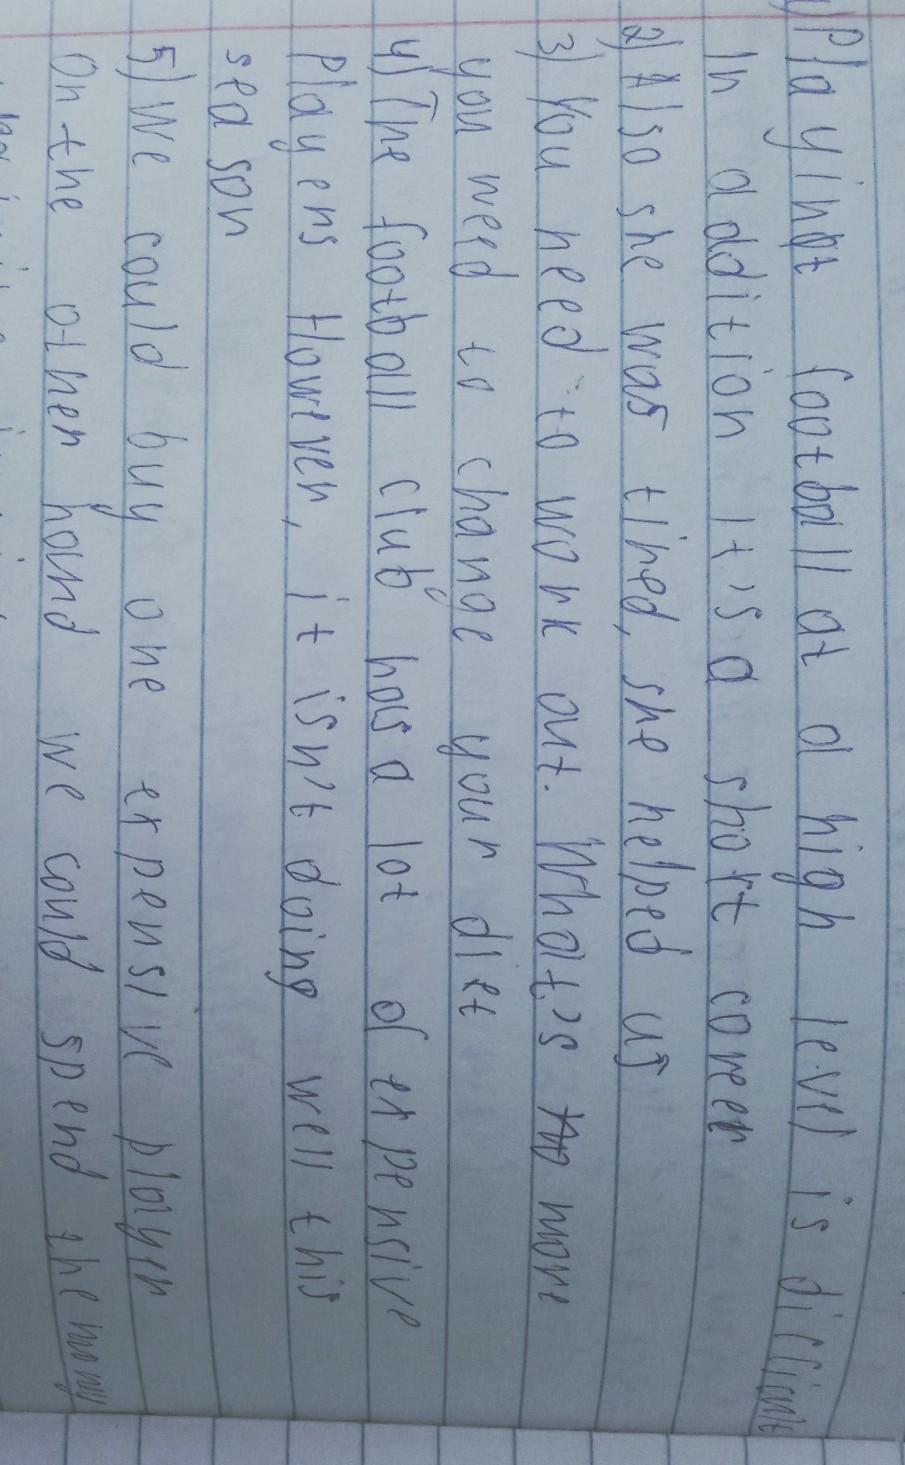 1) Playing football at a high level is difficult
In addition it's a short coreer
2) Also she was tired, she helped us
3) You need to work out. What's more
you need to change your diet
4) The football club has a lot of expensive
Players However, it isn't doing well this
season
5) We could buy one expensive player
On the other hand we could spend the mony